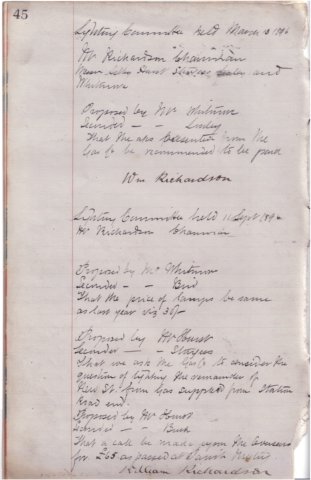 45
Lighting Committee held March 13 1896
Mr Richardson Chairman
Messrs Hurst and
Whitmore
Proposed by Mr Whitmore
Seconder - -
That the a/cs presented from the
Gas Co be recommended to be paid
Wm Richardson
Lighting Committee held 11 Sept 1896
Mr Richardson Chairman
Proposed by Mr Whitmore
Seconder - - Bird
That the price of lamps be same
as last year viz 30/-
Proposed by Mr Hurst
Seconder - - Sturgess
That we ask the Gas Co to consider the
question of lighting the remainder of
Field St from Gas supplied from Station
Road end.
Proposed by Mr Hurst
Seconder - -
That a call be made upon the Overseers
for £65 as passed at Parish
William Richardson